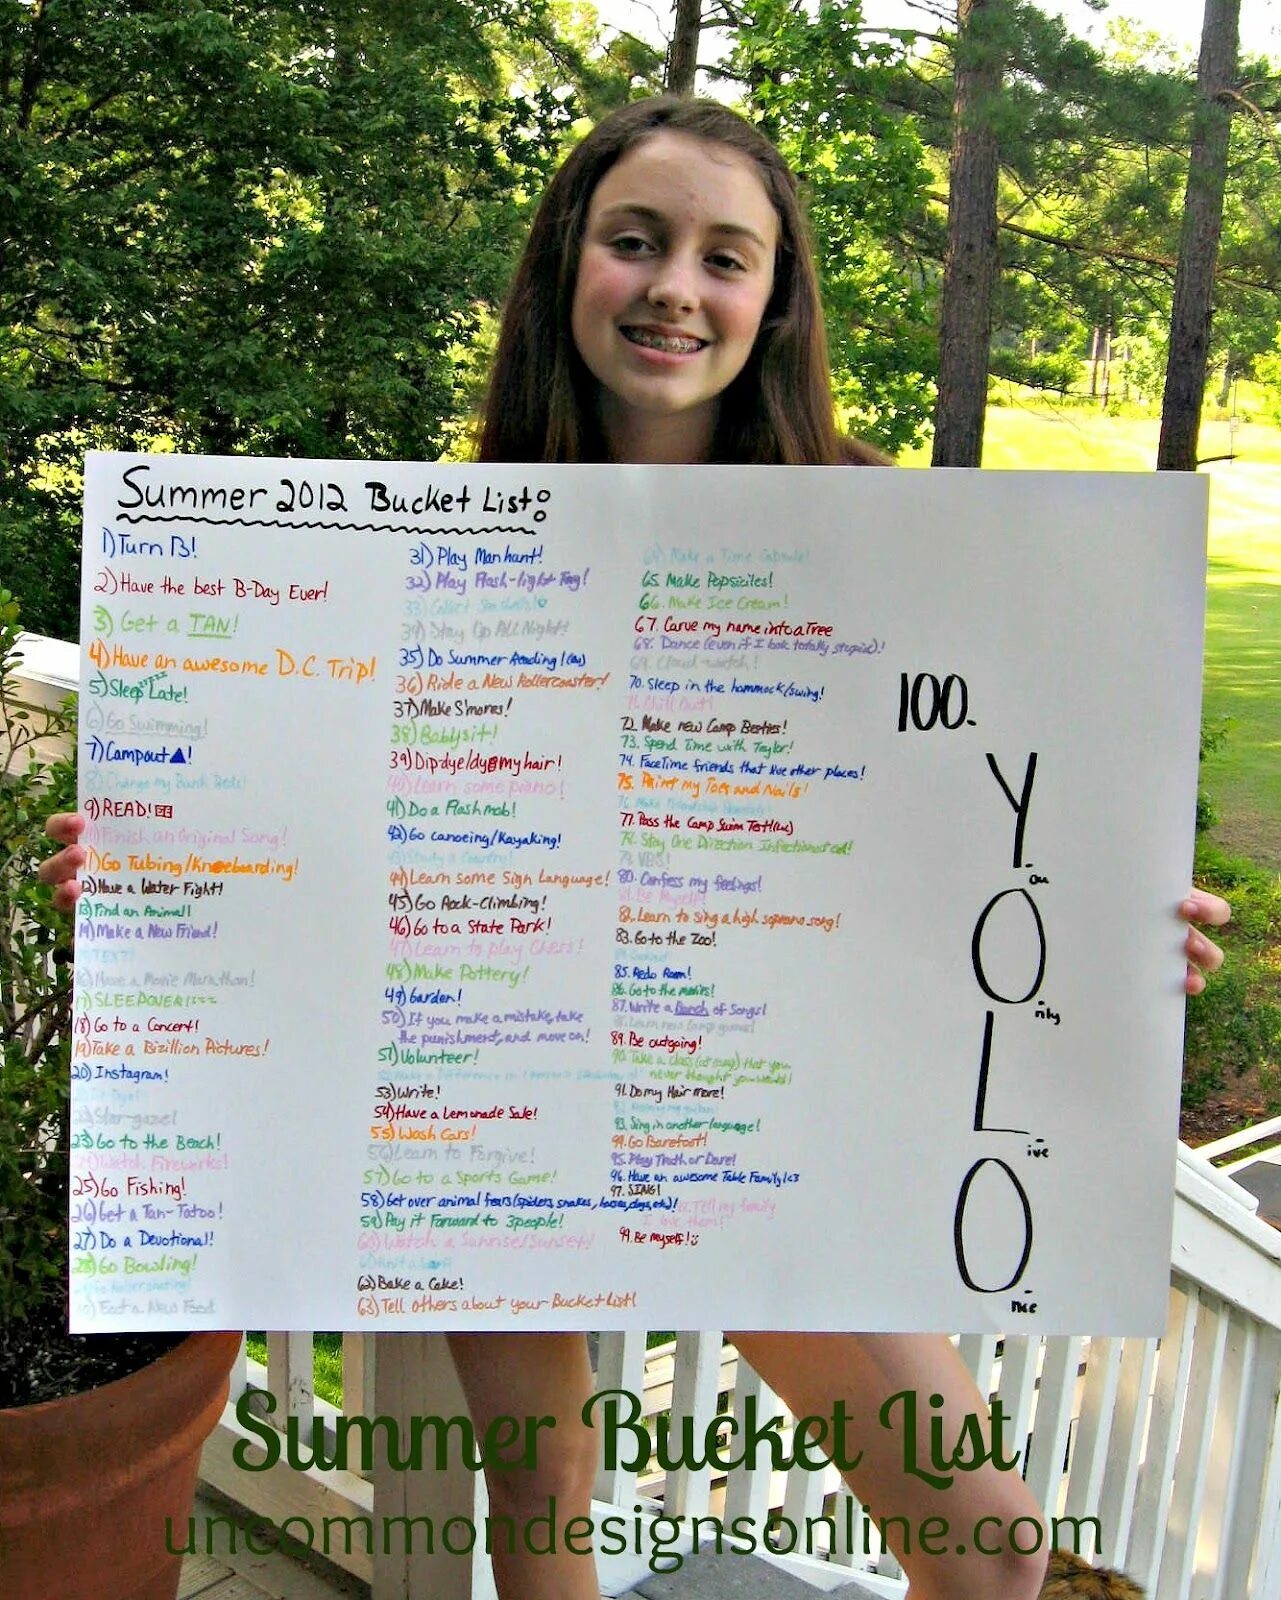 Summer 2012 Bucket List:
1) Turn 13!
2) Have the best B-Day Ever!
3) Get a TAN!
4) Have an awesome D.C. Trip!
5) Sleep Late!
6) Go Swimming!
7) Campout
8) Change my Bunk Beds!
9) READ!
10) Finish an Original Song!
11) Go Tubing/Kneeboarding!
12) Have a Water Fight!
13) Find an Animal!
14) Make a New Friend!
16) Have a Movie Marathon!
17) SLEEPOVER!
18) Go to a Concert!
19) Take a Bizillion Pictures!
20) Instagram!
22) Star-gaze!
23) Go to the Beach!
24) Watch Fireworks!
25) Go Fishing!
26) Get a Tan-Tatoo!
27) Do a Devotional!
28) Go Bowling!
29) Go Rollerskating!
30) Eat a New Food
31) Play Manhunt!
32) Play Flash-light Tag!
33) Collect Sea Shells!
34) Stay Up All Night!
35) Do Summer Reading!
36) Ride a New Rollercoaster!
37) Make S'mores!
38) Babysit!
39) Dip dye/dye my hair!
40) Learn some piano!
41) Do a Flashmob!
42) Go canoeing/Kayaking!
43) Study a Country!
44) Learn some Sign Language!
45) Go Rock-Climbing!
46) Go to a State Park!
47) Learn to play Chess!
48) Make Pottery!
49) Garden!
50) If you make a mistake, take
the punishment, and move on!
51) Volunteer!
52) Make a Difference in
53) Write!
54) Have a Lemonade Sale!
55) Wash Cars!
56) Learn to Forgive!
57) Go to a Sports Game!
58) Get over animal fears (spiders, snakes, horses, dogs, etc)!
59) Pay it Forward to 3 people!
60) Watch a Sunrise/Sunset!
62) Bake a Cake!
63) Tell others about your Bucket List!
64) Make a Time Capsule!
65. Make Popsiciles!
66. Make Ice Cream!
67. Carve my name into a Tree
68. Dance (even if I look totally stupid)!
69. Cloud-watch!
70. Sleep in the hammock/swing!
71. Chill Out!
72. Make new Camp Besties!
73. Spend Time with Taylor!
74. FaceTime friends that live other places!
75. Paint my Toes and Nails!
76. Make Friendship
77. Pass the Camp Swim Test!
78. Stay One Direction Infectionated!
79. VBS!
80. Confess my feelings!
81. Be Myself!
82. Learn to sing a high soprano song!
83. Go to the Zoo!
85. Redo Room!
86. Go to the movies!
87. Write a Bunch of Songs!
88. Learn new Camp games!
89. Be outgoing!
90. Take a class (at camp) that you
never thought you would!
91. Do my Hair more!
93. Sing in another language!
94. Go Barefoot!
95. Play Truth or Dare!
96. Have an awesome Table Family! <3
97. SING!
Tell my family
I love them!
99. Be myself!
100.
Y
ou
O
nly
L
ive
O
nce
Summer Bucket List
uncommondesignsonline.com